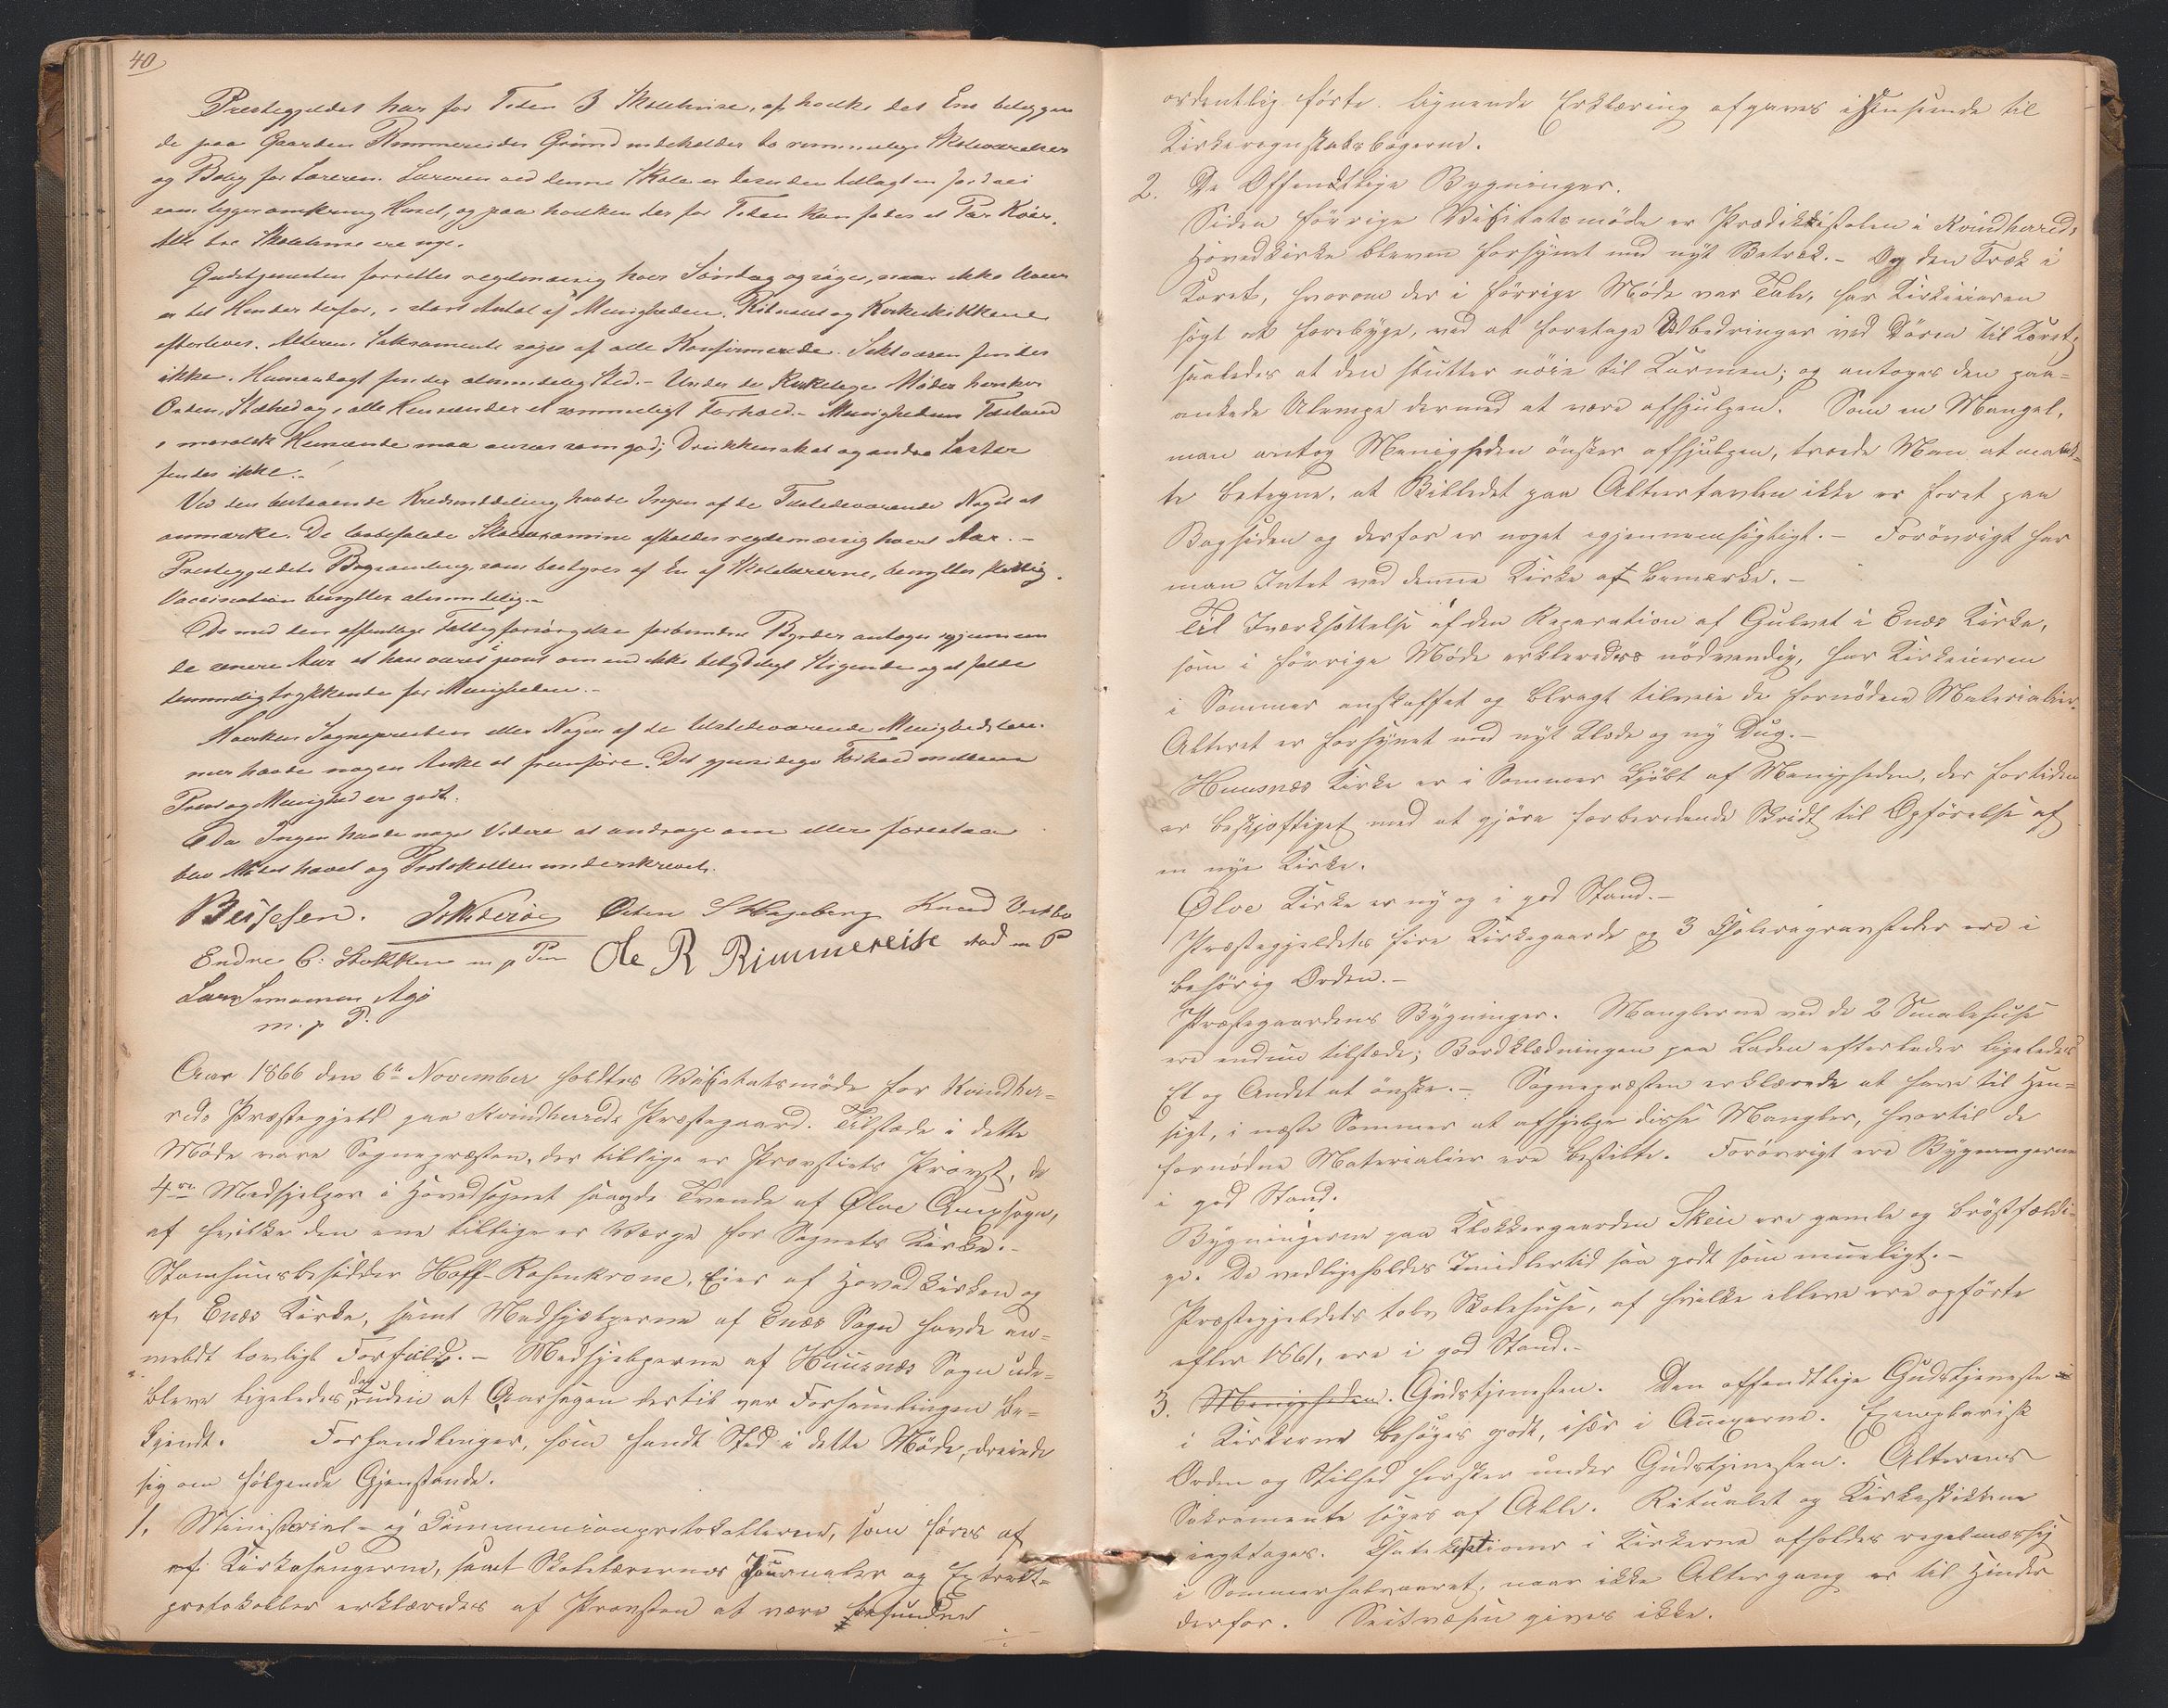 40
Prestegjeldet har for Tiden 3 Skolehuse, af hvilke det Ene bebyggen
de paa Gaarden Rimmereides Grund indeholder to rummelige Skoleværelser
og Bolig for Læreren. Læreren ved denne Skole er desuden tillagt en Jordvei
som ligger omkring Huset, og paa hvilken der for Tiden kan födes et Par Köer.
Alle tre Skolehuse ere nye.
Gudstjenesten forrettes regelmæssig hver Söndag og söges, naar ikke Veiret
er til Hinder derfor, i stort Antal af Menigheden. Ritualet og Kirkeskikkene
efterleves. Alterens Sakramente söges af alle Konfirmerede. Sektvæsen findes
ikke. Huusandagt finder almindelig Sted. – Under de Kirkelige Möder hersker
Orden, Stilhed og i alle Henseender et sömmeligt Forhold. – Menighedens Tilstand
i moralsk Henseende maa ansees som god; Drikkenskab og andre Laster
findes ikke. –
Ved den bestaaende Kredsinddeling havde Ingen af de Tilstedeværende Noget at
anmærke. De lovbefalede Skoleexamina afholdes regelmæssig hvert Aar. –
Prestegjeldets Bogsamling, som bestyres af En af Skolelærerne, benyttes flittig.
Vaccination benyttes almindelig. –
De med den offentlige Fattigforsörgelse forbundne Byrder antoges gjennem
de senere Aar at have været jevnt om end ikke betydeligt Stigende og at falde
temmelig trykkende for Menigheden. –
Hverken Sognepresten eller Nogen af de tilstedeværende Menighedslem-
mer havde nogen Anke at fremföre. Det gjensidige Forhold mellem
Prest og Menighed er godt.
Da Ingen havde noget Videre at andrage om eller forestaae
blev Mödet hævet og Protokollen underskrevet.
Endre C. Stokken m. p. Pen Ole R Rimmereise
Lars Simonsen Agö
m. p. P.
Aar 1866 den 6te November holdtes Visitatsmöde for Kvindher-
reds Præstegjeld paa Kvindherreds Præstegaard. Tilstæde i dette
Möde vare Sognepræsten, der tillige er Provstiets Provst, de
4re Medhjelper i Hovedsognet saagdt Tvende af Ølve Annexsogn,
af hvilke den ene tillige er Værge for Sognets Kirke. –
Stamhuusbesidder Hoff-Rosenkrone, Eier af Hovedkirken og
af Enæs Kirke, samt Medhjælperne af Enæs Sogn havde an-
meldt lovligt Forfald. – Medhjelperne af Huusnæs Sogn ude-
bleve ligeledes, uden at Aarsagen dertil var Forsamlingen be-
kjendt. Forhandlinger, som fandt Sted i dette Möde, dreiede
sig om fölgende Gjenstande.
1. Ministerial- og Communionprotokollerne, som föres af
af Kirkesangerne, samt Skolelærernes Journaler og Extrakt-
protokoller erklæredes af Provsten at være befundne
ordentlig förte. Lignende Erklæring afgaves i Henseende til
Kirkeregnskabsbögerne.
2. De Offentlige Bygninger.
Siden förrige Visitatsmöde er Prædikestolen i Kvindherreds
Hovedkirke bleven forsynet med nyt Betræk. – Og den Træk i
Koret, hvorom der i förrige Möde var Tale, har Kirkeeieren
sögt at forebyge, ved at foretage Udbedringer ved Dören til Koret,
saaledes at den slutter nöie til Karmen; og antoges den paa-
ankede Ulempe dermed at være afhjulpen. Som en Mangel,
man antog Menigheden önsker afhjulpen, troede Man at maat-
te betegne, at Billedet paa Altertavlen ikke er foret paa
Bagsiden og derfor er noget igjennemsigtigt. – Forövrigt har
man Intet ved denne Kirke at bemærke. –
Til Iværksættelse af den Reparation af Gulvet i Enæs Kirke,
som i förrige Möde erklæredes nödvendig, har Kirkeeieren
i Sommer anskaffet og bragt tilveie de fornödne Materialier.
Alteret er forsynet med nyt Klæde og ny Dug. –
Huusnæs Kirke er i Sommer kjöbt af Menigheden, der for tiden
er beskjæftiget med at gjöre forberedende Skridt til Opförelse af
en nye Kirke.
Ølve Kirke er ny og i god Stand. –
Præstegjeldets fire Kirkegaarde og 3 Koleragravsteder ere i
behörig Orden. –
Præstegaardens Bygninger. Manglerne ved de 2 Smalehuse
ere endnu tilstæde; Bordklædningen paa Laden efterlader ligeledes
Et og Andet at önske. – Sognepræsten erklærede at have til Hen-
sigt, i næste Sommer at afhjelpe disse Mangler, hvortil de
fornödne Materialier ere bestilte. Forövrigt ere Bygningerne
i god Stand.
Bygningerne paa Klokkergaarden Skeie ere gamle og bröstfældi-
ge. De vedligeholdes Imidlertid saa godt som mueligt. –
Præstegjeldets tolv Skolehuse, af hvilke elleve ere opförte
efter 1861, ere i god Stand. –
3. Menigheden. Gudstjenesten. Den offendtlige Gudstjeneste
i Kirkerne besöges godt, især i Annexerne. Exemplarisk
Orden og Stilhed hersker under Gudstjenesten. Alterens
Sakramente söges af Alle. Ritualet og Kirkeskikkene
iagttages. Katekisationer i Kirkerne afholdes regelmæssig
i Sommerhalvaaret, naar ikke Altergang er til Hinder
derfor. Sektvæsen gives ikke.